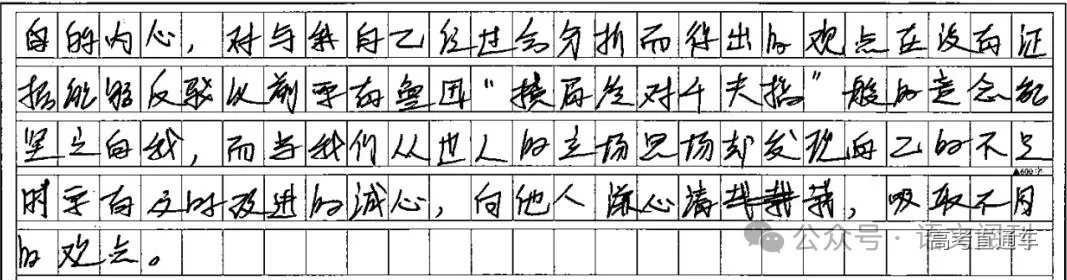 自的内心，对与我自己经过会分析而得出的观点在没有证
据能够反驳以前要有鲁迅“横眉冷对千夫指”般的意念能
坚定自我，而当我们从世人的立场思场却发现自己的不足
▲600字
时要有及时改进的诚心，向他人虚心请我，吸取不同
的观点。
公众号·语
高考直通车